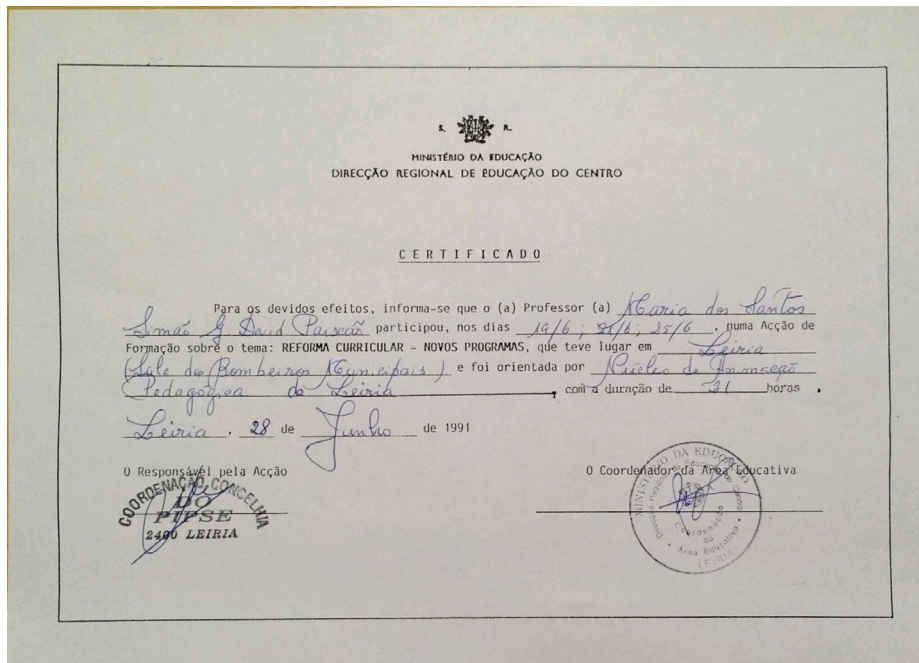 S. R.
MINISTÉRIO DA EDUCAÇÃO
DIRECÇÃO REGIONAL DE EDUCAÇÃO DO CENTRO
CERTIFICADO
Para os devidos efeitos, informa-se que o (a) Professor (a) Maria dos Santos
Simão G. David participou, nos dias 19/6; 21/6; 25/6, numa Acção de
Formação sobre o tema: REFORMA CURRICULAR - NOVOS PROGRAMAS, que teve lugar em Leiria
(Sala dos Bombeiros Municipais) e foi orientada por Núcleo de Animação
Pedagógica de Leiria, com a duração de horas.
Leiria, 28 de Junho de 1991
O Responsável pela Acção
O Coordenador da Área Educativa
COORDENAÇÃO CONCELHIA
DO
PIPSE
2400 LEIRIA
MINISTÉRIO DA EDUCAÇÃO
Direcção Regional de Educação do Centro
Coordenação
da
Área Educativa
LEIRIA